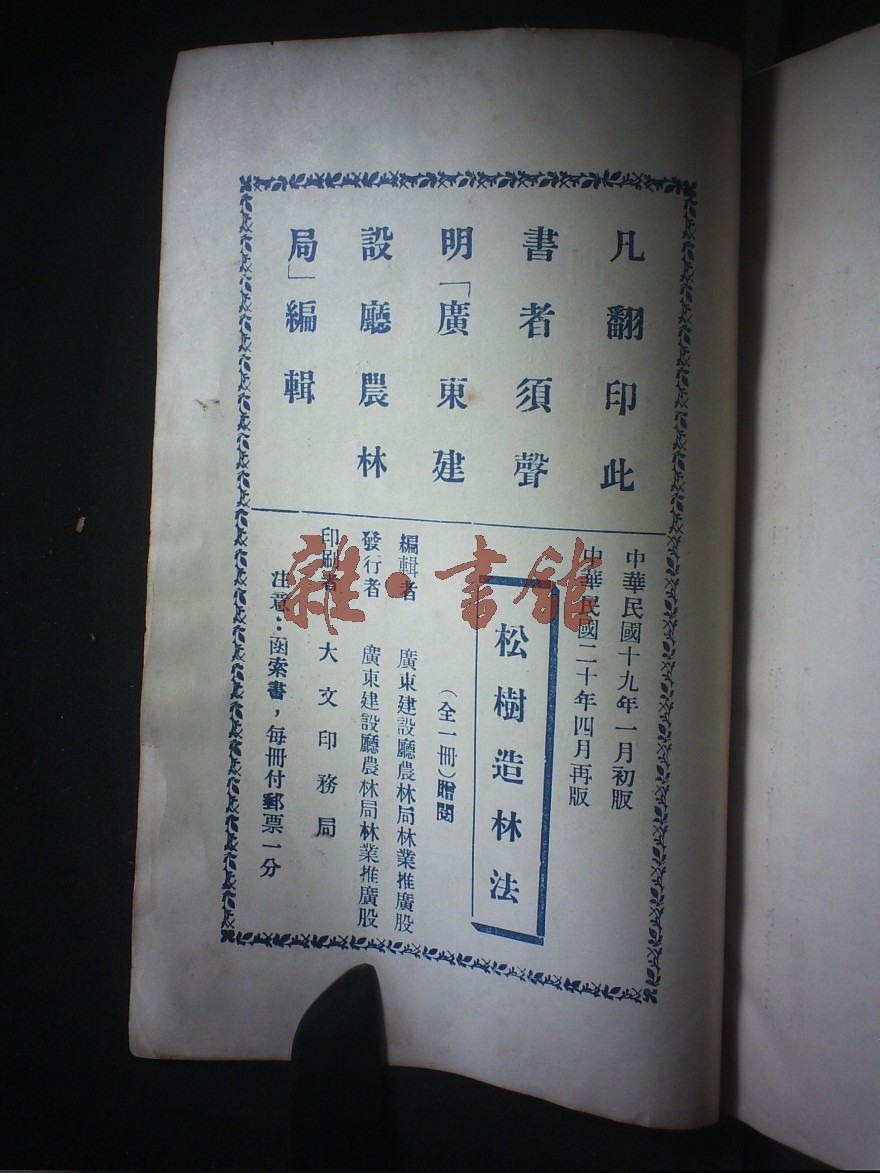 凡翻印此
書者須聲
明「廣東建
設廳農林
局」編輯
中華民國十九年一月初版
中華民國二十年四月再版
松樹造林法
(全一冊)贈閱
編輯者 廣東建設廳農林局林業推廣股
發行者 廣東建設廳農林局林業推廣股
印刷者 大文印務局
注意：函索書，每冊付郵票一分
雜·書館